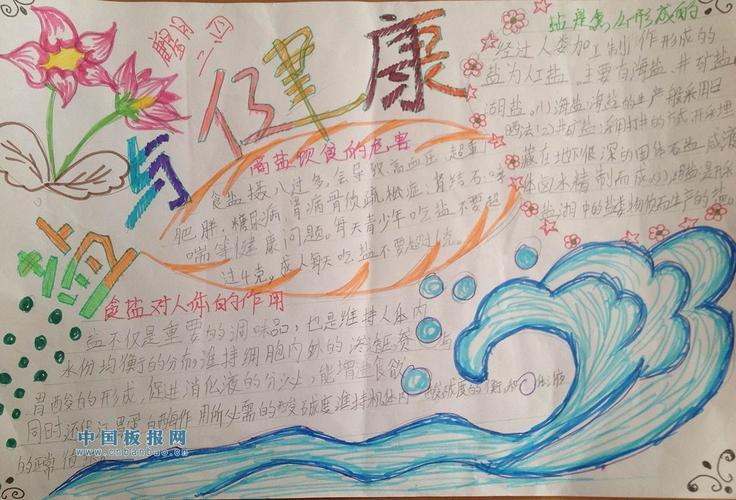 盐与健康
二四
高盐饮食的危害
食盐摄入过多,会导致高血压、超重
肥胖、糖尿病、胃病骨质疏松症、肾结石、哮
喘等健康问题。每天青少年吃盐不要超
过4克。成人每天吃盐不要超过6克。
盐是怎么形成的
经过人类加工制作形成的
盐为人工盐 主要有海盐、井矿盐
湖盐。(1)海盐:海盐的生产般采用日
晒法(2)井矿盐:采用打井的方式,开采埋
藏在地下很深的固体石盐或液
体卤水精制而成(3)湖盐:是开采
盐湖中的盐
生产的盐。
食盐对人体的作用
盐不仅是重要的调味品,也是维持人体内
水份均衡的分布,维持细胞内外的渗
胃酸的形成,促进消化液的分泌,能增进食欲
同时还保证胃蛋白酶作用所必需的酸碱度维持机体内酸碱度的
的正常
中国板报网
www.cnbanbao.cn